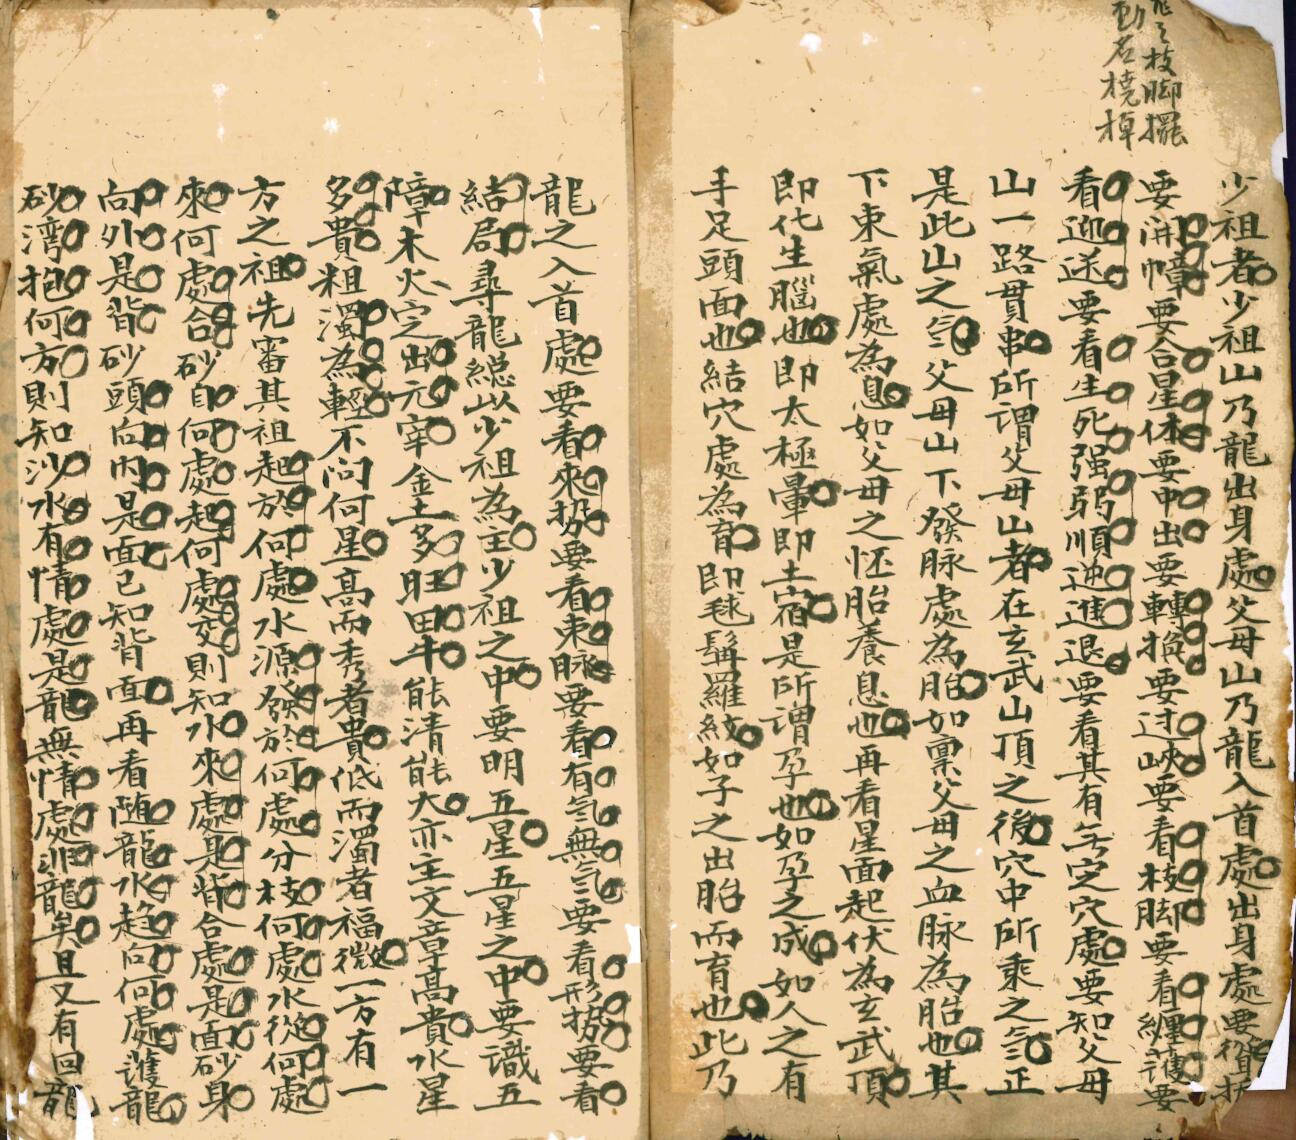 枝脚擺
動名橈棹
少祖者少祖山乃龍出身處父母山乃龍入首處出身處要聳拔
要開幛要合星体要中出要轉換要过峽要看枝脚要看纏護要
看迎送要看生死强弱順逆進退要看其有無定穴處要知父母
山一路貫串所謂父母山者在玄武山頂之後穴中所乘之气正
是此山之气父母山下發脉處為胎如禀父母之血脉為胎也其
下束氣處為息如父母之怀胎養息也再看星面起伏為玄武頂
即化生腦也即太極暈即土宿是所謂孕也如孕之成如人之有
手足頭面也結穴處為育即毬髯羅紋如子之出胎而育也此乃
龍之入首處要看來势要看束脉要看有气無气要看形势要看
結局尋龍縂以少祖為主少祖之中要明五星五星之中要識五
障木火定出元宰金土多旺田牛能清能大亦主文章高貴水星
多貴粗濁為輕不问何星高而秀者貴低而濁者福微一方有一
方之祖先審其祖起於何處水源發於何處分枝何處水從何處
來何處合砂自何處起何處交則知水來處是背合處是面砂身
向外是背砂頭向内是面已知背面再看随龍水趋向何處護龍
砂湾抱何方則知沙水有情處是龍無情處非龍矣且又有回龍